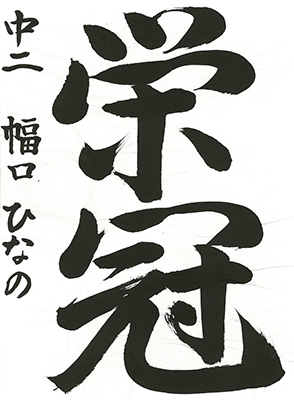 栄冠
中二 幅口 ひなの